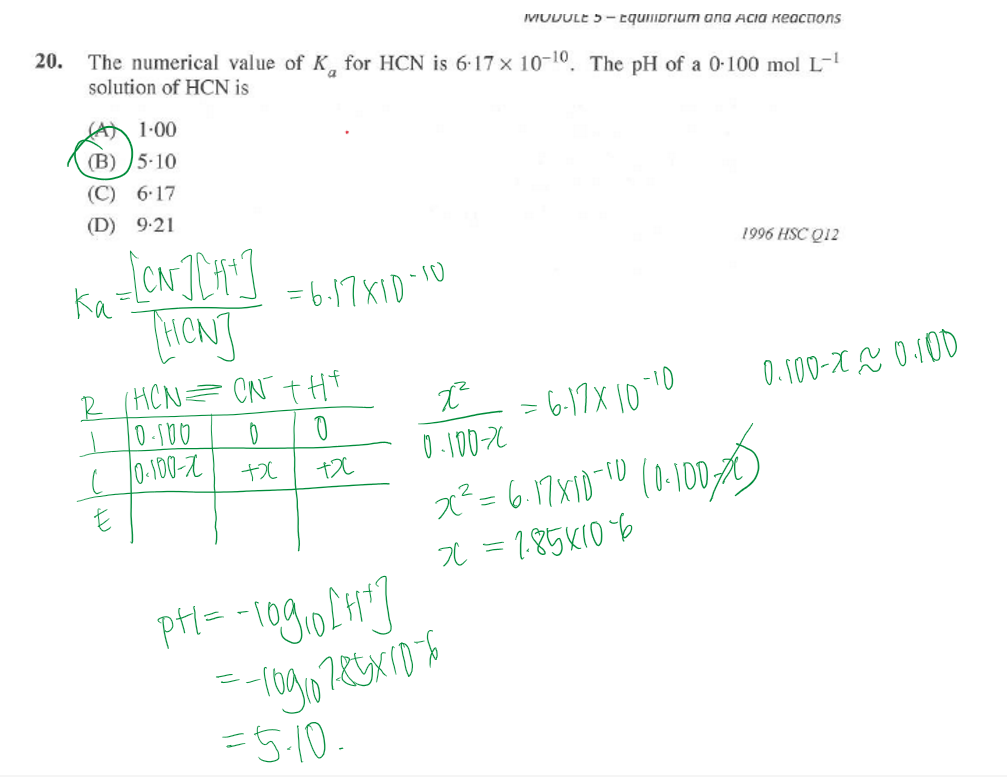 MODULE 5 – Equilibrium and Acid Reactions
20. The numerical value of Ka for HCN is 6·17 × 10⁻¹⁰. The pH of a 0·100 mol L⁻¹
solution of HCN is
(A) 1·00
(B) 5·10
(C) 6·17
(D) 9·21
1996 HSC Q12
Ka = [CN⁻][H⁺] / [HCN] = 6.17×10⁻¹⁰
R HCN ⇌ CN⁻ + H⁺
I 0.100 0 0
C 0.100-x +x +x
E
x² / 0.100-x = 6.17×10⁻¹⁰
0.100-x ≈ 0.100
x² = 6.17×10⁻¹⁰ (0.100-x)
x = 7.85×10⁻⁶
pH = -log₁₀[H⁺]
= -log₁₀ 7.85×10⁻⁶
= 5.10.